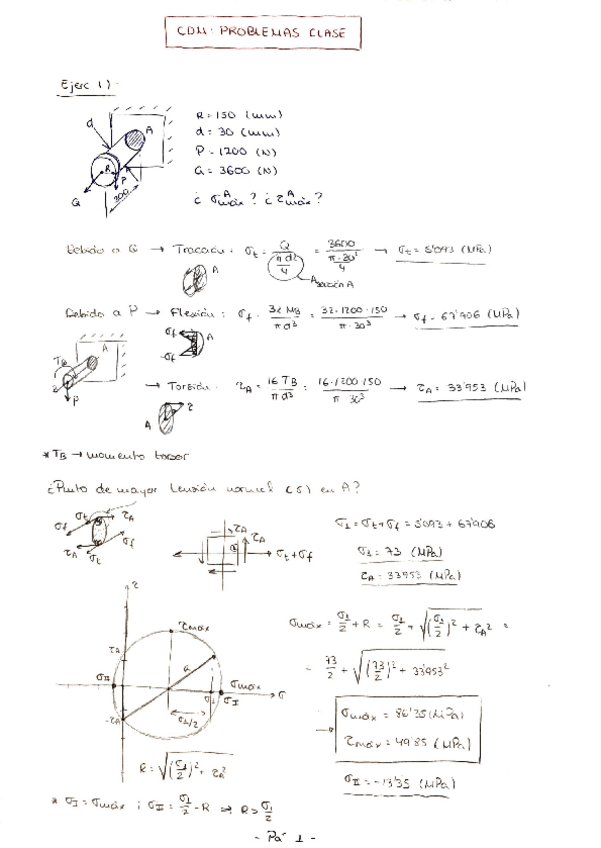 CDM: PROBLEMAS CLASE
Ejerc 1) -
R = 150 (mm)
d = 30 (mm)
P = 1200 (N)
Q = 3600 (N)
¿ σ^A máx ? ¿ τ^A máx ?
d
A
R
P
Q
Debido a Q → Tracción: σt = Q / (πd²/4) = 3600 / (π·30²/4) → σt = 5'093 (MPa)
A
A sección A
Debido a P → Flexión: σf = 32 MB / πd³ = 32·1200·150 / π·30³ → σf = 67'906 (MPa)
σf
-σf
A
TB
A
P
→ Torsión: τA = 16 TB / πd³ = 16·1200·150 / π 30³ → τA = 33'953 (MPa)
A
τ
* TB → momento torsor
¿Punto de mayor tensión normal (σ) en A?
σt τA
σf
τA σt σf
τA
τA
σt+σf
σ1 = σt + σf = 5'093 + 67'906
σ1 = 73 (MPa)
τA = 33'953 (MPa)
τ
τmáx
τA
R
σII
σmáx
σI
σ
-τA
σ1/2
R = √((σ1/2)² + τA²)
σmáx = σ1/2 + R = σ1/2 + √((σ1/2)² + τA²) =
= 73/2 + √((73/2)² + 33'953²)
→ σmáx = 86'35 (MPa)
τmáx = 49'85 (MPa)
σII = -13'35 (MPa)
* σI = σmáx ; σII = σ1/2 - R ⇒ R > σ1/2
- Pá 1 -